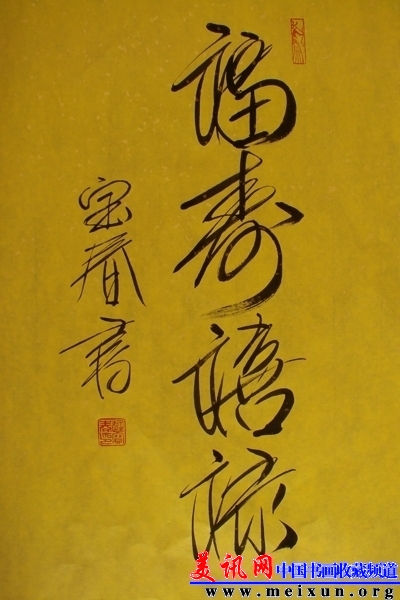 福寿禧禄
宝春书
美讯网 中国书画收藏频道
www.meixun.org